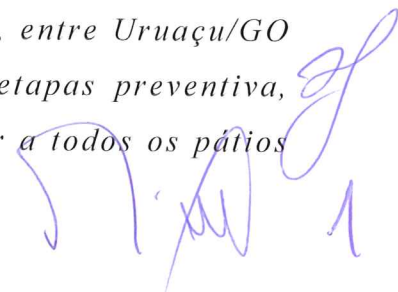 , entre Uruaçu/GO
etapas preventiva,
r a todos os pátios